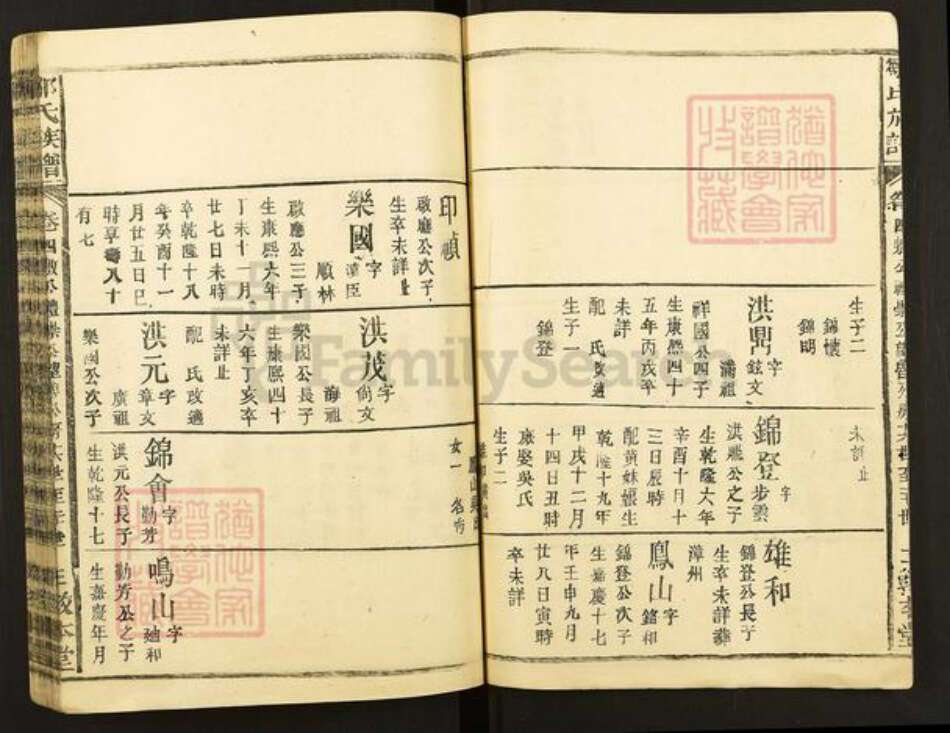 生子二
錦懷
錦明
洪鼎
字
鉉文
滿祖
祥國公四子
生康熙四十
五年丙戌卒
未詳
配 氏改適
生子一
錦登
未詳止
錦登
字
步雲
洪鼎公之子
生乾隆六年
辛酉十月十
三日辰時
配黃妹娘生
乾隆十九年
甲戌十二月
十四日丑時
庶娶吳氏
生子二
雄和
錦登公長子
生卒未詳葬
漳州
鳳山
字
錦和
錦登公次子
生嘉慶十七
年壬申九月
廿八日寅時
卒未詳
印禎
啟廳公次子
生卒未詳止
樂國
字
漢臣
順林
啟廳公三子
生康熙六年
丁未十一月
廿七日未時
卒乾隆十八
年癸酉十一
月廿五日巳
時享壽八十
有七
洪茂
字
尙文
海祖
樂國公長子
生康熙四十
六年丁亥卒
未詳止
配 氏改適
洪元
字
章文
廣祖
樂國公次子
女一
錦會
字
勤芳
洪元公長子
生乾隆十七
鳴山
字
廸和
勤芳公之子
生嘉慶年月
FamilySearch